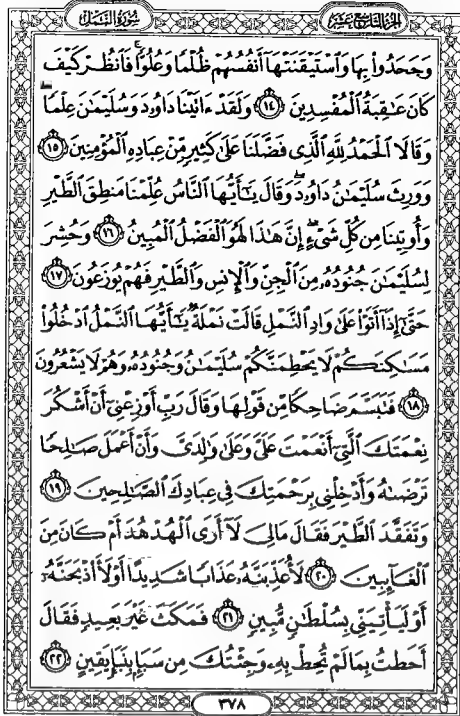 سُورَةُ النَّمْلِ
الجزء التاسع عشر
وَجَحَدُوا۟ بِهَا وَٱسْتَيْقَنَتْهَآ أَنفُسُهُمْ ظُلْمًا وَعُلُوًّا ۚ فَٱنظُرْ كَيْفَ
كَانَ عَـٰقِبَةُ ٱلْمُفْسِدِينَ ١٤ وَلَقَدْ ءَاتَيْنَا دَاوُۥدَ وَسُلَيْمَـٰنَ عِلْمًا ۖ
وَقَالَا ٱلْحَمْدُ لِلَّهِ ٱلَّذِى فَضَّلَنَا عَلَىٰ كَثِيرٍ مِّنْ عِبَادِهِ ٱلْمُؤْمِنِينَ ١٥
وَوَرِثَ سُلَيْمَـٰنُ دَاوُۥدَ ۖ وَقَالَ يَـٰٓأَيُّهَا ٱلنَّاسُ عُلِّمْنَا مَنطِقَ ٱلطَّيْرِ
وَأُوتِينَا مِن كُلِّ شَىْءٍ ۖ إِنَّ هَـٰذَا لَهُوَ ٱلْفَضْلُ ٱلْمُبِينُ ١٦ وَحُشِرَ
لِسُلَيْمَـٰنَ جُنُودُهُۥ مِنَ ٱلْجِنِّ وَٱلْإِنسِ وَٱلطَّيْرِ فَهُمْ يُوزَعُونَ ١٧
حَتَّىٰٓ إِذَآ أَتَوْا۟ عَلَىٰ وَادِ ٱلنَّمْلِ قَالَتْ نَمْلَةٌ يَـٰٓأَيُّهَا ٱلنَّمْلُ ٱدْخُلُوا۟
مَسَـٰكِنَكُمْ لَا يَحْطِمَنَّكُمْ سُلَيْمَـٰنُ وَجُنُودُهُۥ وَهُمْ لَا يَشْعُرُونَ
١٨ فَتَبَسَّمَ ضَاحِكًا مِّن قَوْلِهَا وَقَالَ رَبِّ أَوْزِعْنِىٓ أَنْ أَشْكُرَ
نِعْمَتَكَ ٱلَّتِىٓ أَنْعَمْتَ عَلَىَّ وَعَلَىٰ وَٰلِدَىَّ وَأَنْ أَعْمَلَ صَـٰلِحًا
تَرْضَىٰهُ وَأَدْخِلْنِى بِرَحْمَتِكَ فِى عِبَادِكَ ٱلصَّـٰلِحِينَ ١٩
وَتَفَقَّدَ ٱلطَّيْرَ فَقَالَ مَالِىَ لَآ أَرَى ٱلْهُدْهُدَ أَمْ كَانَ مِنَ
ٱلْغَآئِبِينَ ٢٠ لَأُعَذِّبَنَّهُۥ عَذَابًا شَدِيدًا أَوْ لَأَا۟ذْبَحَنَّهُۥٓ
أَوْ لَيَأْتِيَنِّى بِسُلْطَـٰنٍ مُّبِينٍ ٢١ فَمَكَثَ غَيْرَ بَعِيدٍ فَقَالَ
أَحَطتُ بِمَا لَمْ تُحِطْ بِهِۦ وَجِئْتُكَ مِن سَبَإٍۭ بِنَبَإٍ يَقِينٍ ٢٢
٣٧٨